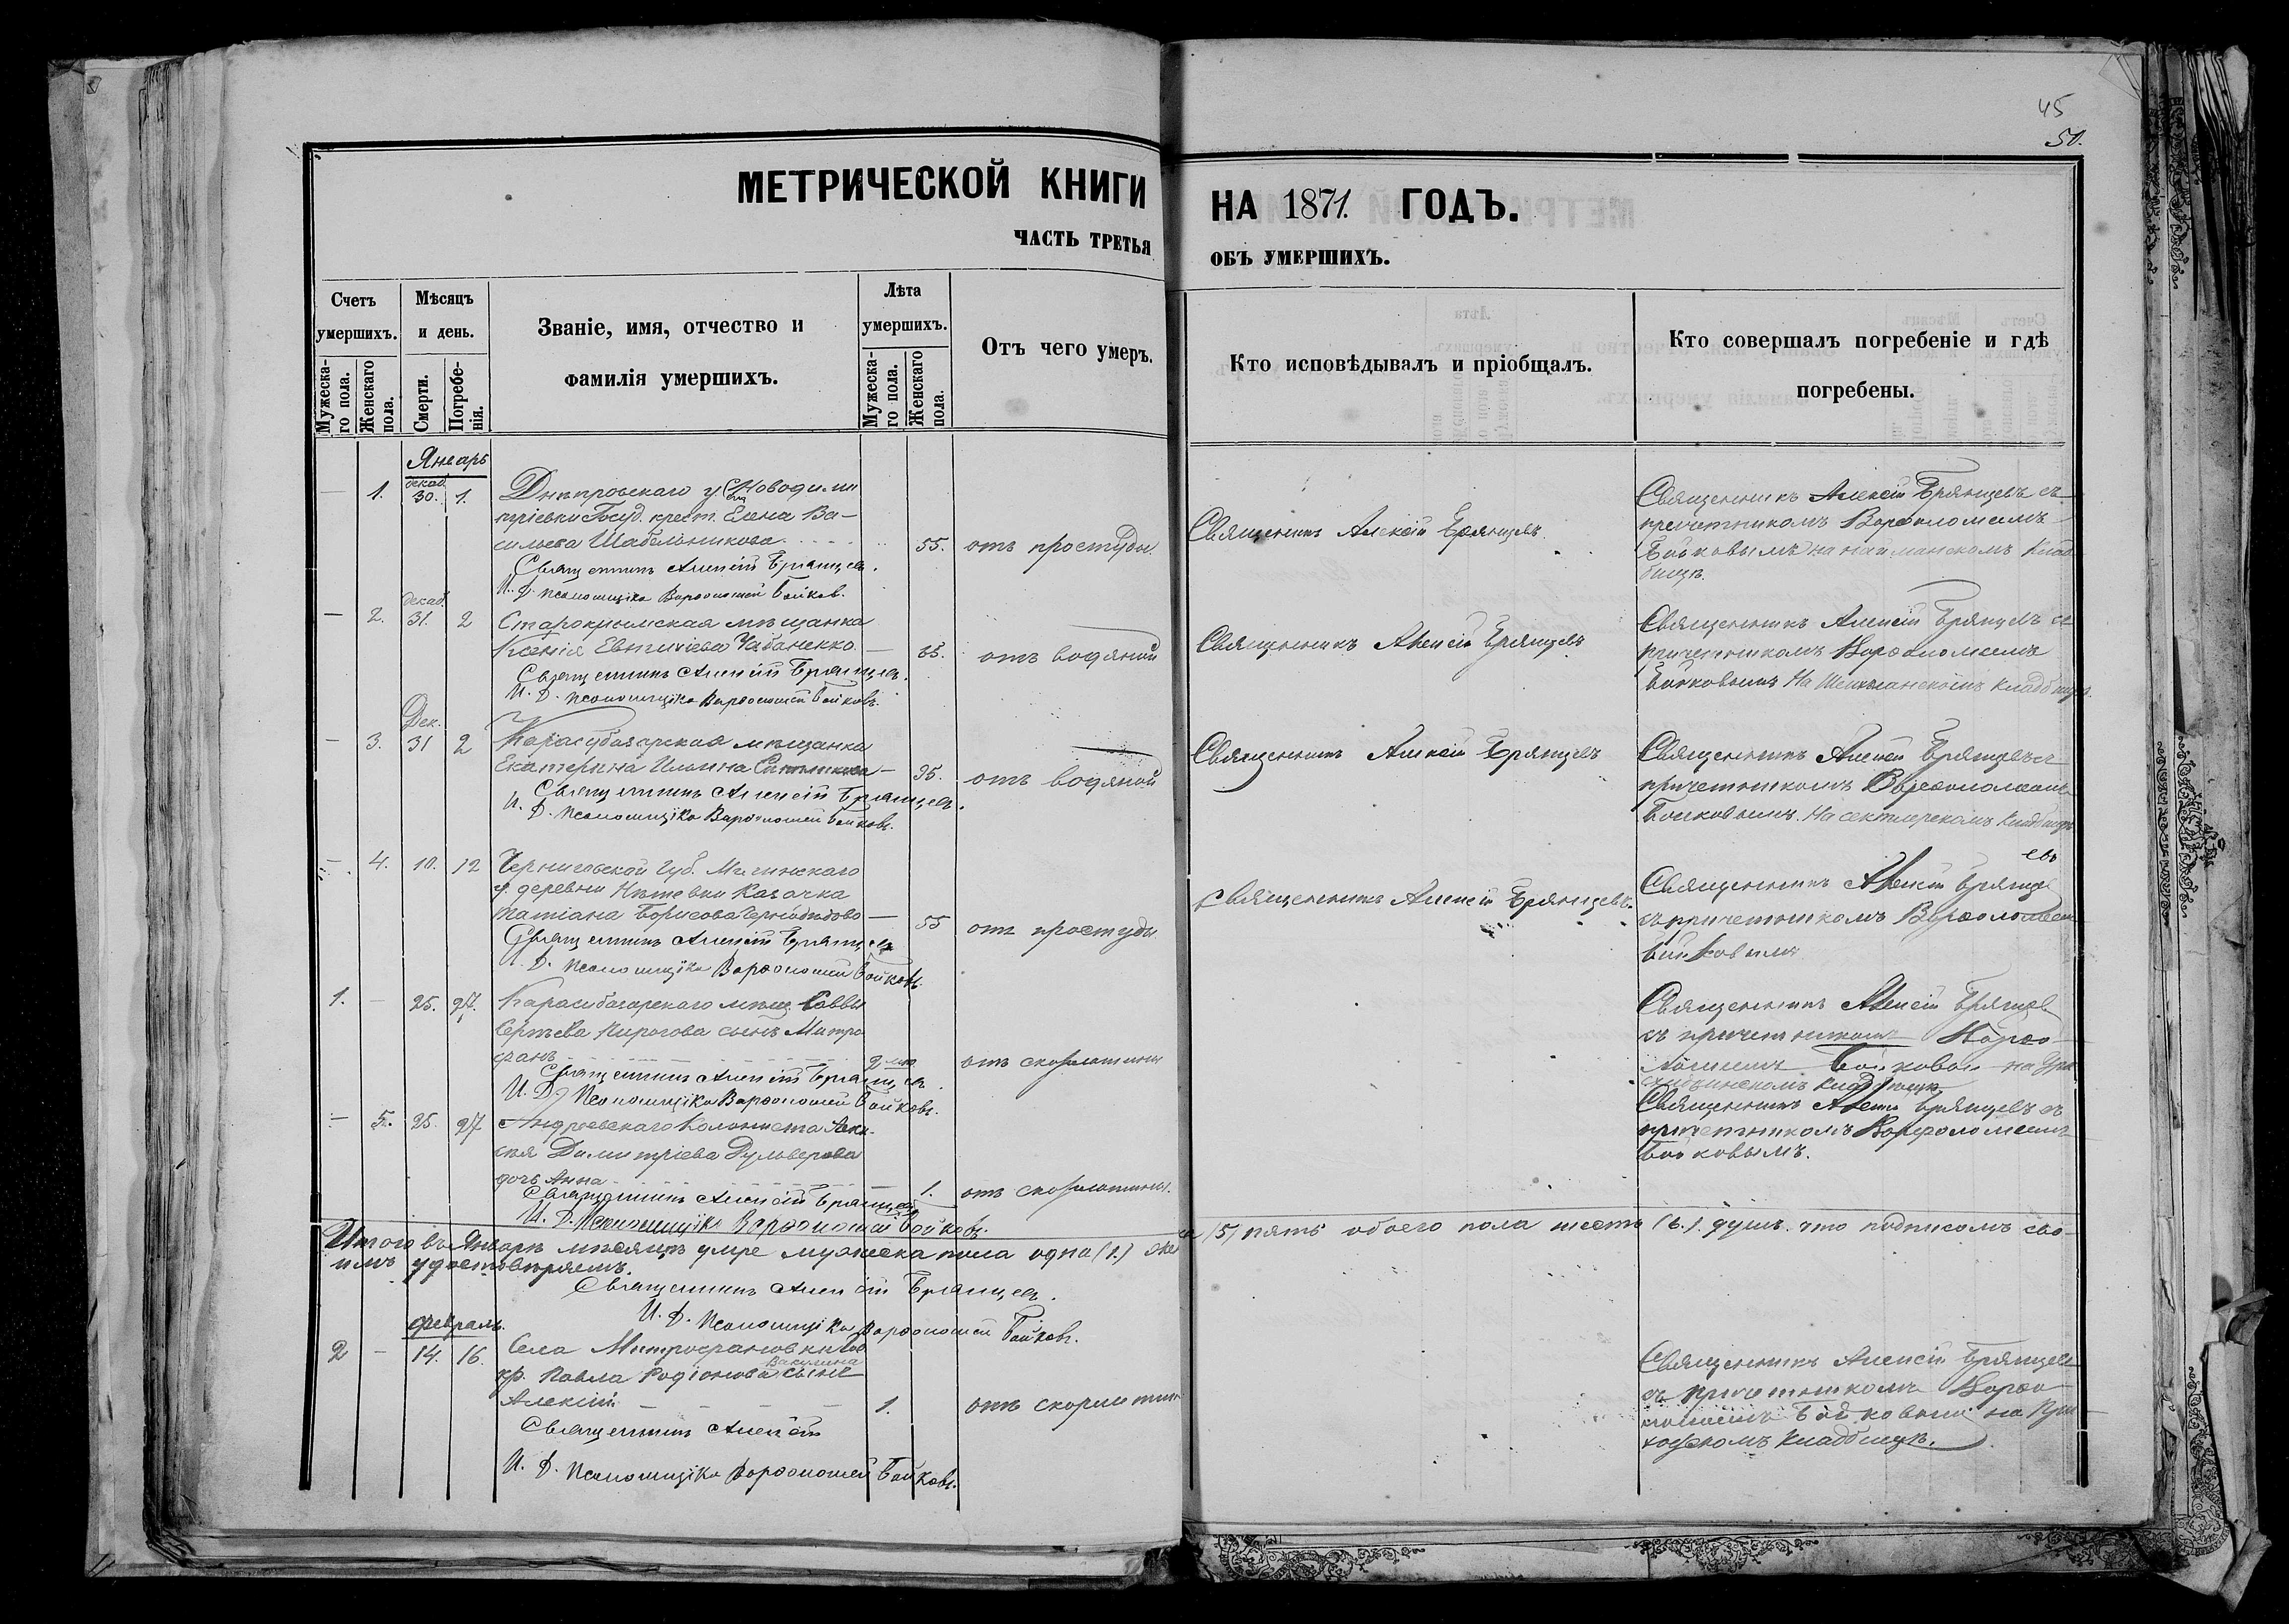 45
50.
МЕТРИЧЕСКОЙ КНИГИ НА 1871. ГОДЪ.
ЧАСТЬ ТРЕТЬЯ ОБЪ УМЕРШИХЪ.
Счетъ умершихъ.
Мужеска-го пола.
Женскаго пола.
Мѣсяцъ и день.
Смерти.
Погребе-нія.
Званіе, имя, отчество и фамилія умершихъ.
Лѣта умершихъ.
Мужеска-го пола.
Женскаго пола.
Отъ чего умеръ.
Кто исповѣдывалъ и пріобщалъ.
Кто совершалъ погребеніе и гдѣ погребены.
Январь
декаб.
— 1. 30. 1.
Днѣпровскаго у.
Госуд. крест. Елена Ва-
сильева Шабельникова
55. отъ простуды.
Священникъ Алексій Брянцевъ.
И. Д. Псаломщика Варѳоломей Бойковъ.
Священникъ Алексій Брянцевъ.
Священникъ Алексій Брянцевъ съ
причетникомъ Варѳоломеемъ
Бойковымъ на
декаб.
— 2. 31. 2
Старокрымская мѣщанка
Ксенія Евтихіева Чабаненко.
отъ водяной
Священникъ Алексій Брянцевъ.
И. Д. Псаломщика Варѳоломей Бойковъ.
Священникъ Алексій Брянцевъ
Священникъ Алексій Брянцевъ съ
причетникомъ Варѳоломеемъ
Бойковымъ На кладбищѣ.
Дек.
— 3. 31 2
Карасубазарская мѣщанка
Екатерина Ильина
35. отъ водяной
Священникъ Алексій Брянцевъ.
И. Д. Псаломщика Варѳоломей Бойковъ.
Священникъ Алексій Брянцевъ
Священникъ Алексій Брянцевъ съ
причетникомъ Варѳоломеемъ
Бойковымъ. На кладбищѣ
— 4. 10. 12
Черниговской Губ. Мглинскаго
у. деревни Казачка
Татіана Борисова
55 отъ простуды
Священникъ Алексій Брянцевъ
И. Д. Псаломщика Варѳоломей Бойковъ.
Священникъ Алексій Брянцевъ.
Священникъ Алексій Брянцевъ
съ причетникомъ Варѳоломеемъ
Бойковымъ
1. — 25. 27.
Карасубазарскаго мѣщ. Саввы
Сергѣева Пирогова сынъ Митро
фанъ
2 отъ скорлатины
Священникъ Алексій Брянцевъ.
И. Д. Псаломщика Варѳоломей Бойковъ.
Священникъ Алексій Брянцевъ
съ причетникомъ Варѳо-
ломеемъ Бойковым на
кладбищѣ
— 5. 25. 27
Андреевскаго Колониста
Димитріева
дочь Анна
1. отъ скорлатины.
Священникъ Алексій Брянцевъ
И. Д. Псаломщика Варѳоломей Бойковъ.
Священникъ Алексій Брянцевъ съ
причетникомъ Варѳоломеемъ
Бойковымъ.
Итого въ Январѣ мѣсяцѣ умре мужеска пола одна (1.) жен
ска (5) пять обоего пола шесть (6.) душъ. что подписомъ сво-
имъ удостовѣряемъ.
Священникъ Алексій Брянцевъ.
И. Д. Псаломщика Варѳоломей Бойковъ.
Февраль.
2 — 14. 16.
Села Митрофановки
кр. Павла Родіонова сынъ
Алексій
1. отъ скорлатин
Священникъ Алексій
И. Д. Псаломщика Варѳоломей Бойковъ.
Священникъ Алексій Брянцевъ
съ причетникомъ Варѳо-
ломеемъ Бойковым на При-
ходскомъ кладбищѣ.